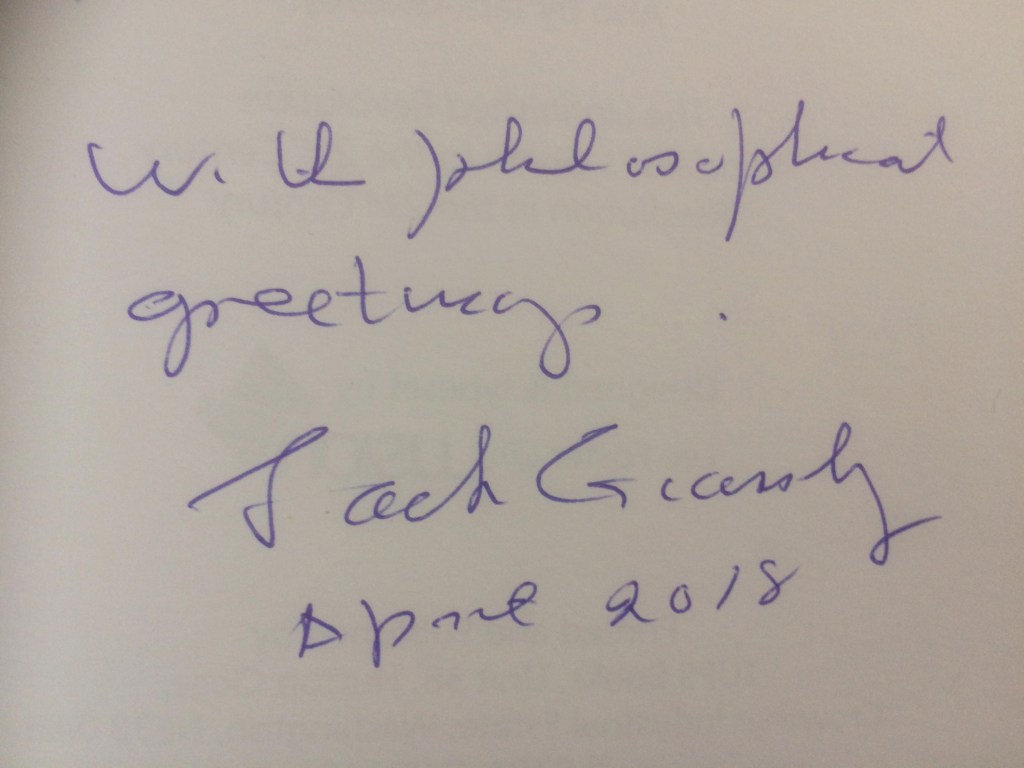 With philosophical
greetings.
Jack Grassby
April 2018